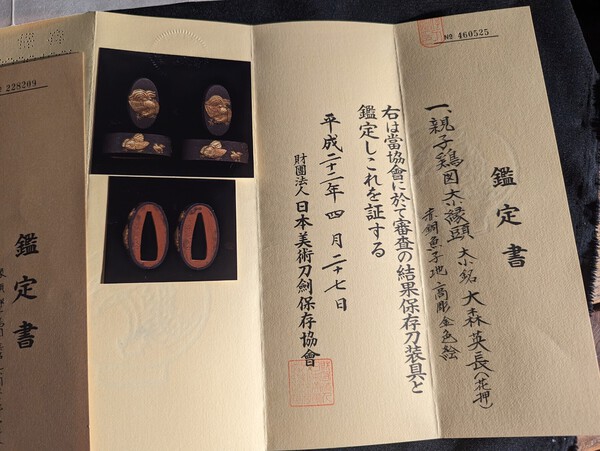 № 460525
鑑定書
一、親子鶏図大小縁頭 大小銘 大森英長(花押)
赤銅魚子地 高彫 金色絵
右は當協會に於て審査の結果保存刀装具と
鑑定しこれを証する
平成二十二年四月二十七日
財團法人日本美術刀劍保存協會
228209
鑑定書